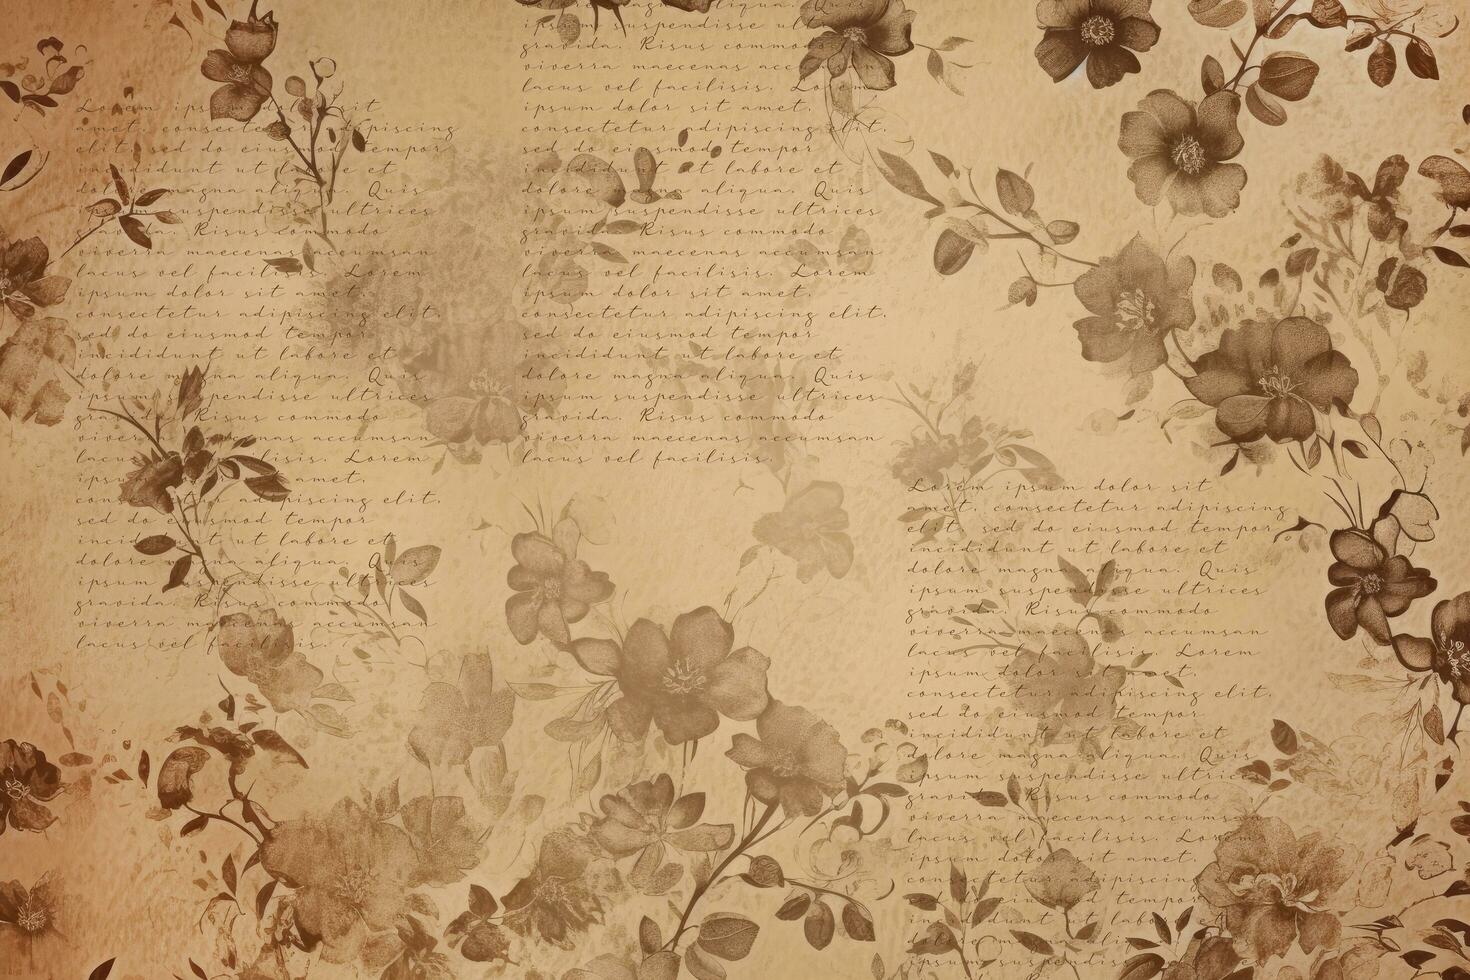 Lorem ipsum dolor sit
amet, consectetur adipiscing
elit, sed do eiusmod tempor
incididunt ut labore et
dolore magna aliqua. Quis
ipsum suspendisse ultrices
gravida. Risus commodo
viverra maecenas accumsan
lacus vel facilisis. Lorem
ipsum dolor sit amet,
consectetur adipiscing elit,
sed do eiusmod tempor
incididunt ut labore et
dolore magna aliqua. Quis
ipsum suspendisse ultrices
gravida. Risus commodo
viverra maecenas accumsan
lacus vel facilisis. Lorem
ipsum dolor sit amet,
consectetur adipiscing elit,
sed do eiusmod tempor
incididunt ut labore et
dolore magna aliqua. Quis
ipsum suspendisse ultrices
gravida. Risus commodo
viverra maecenas accumsan
lacus vel facilisis.
dolore magna aliqua. Quis
ipsum suspendisse ultrices
gravida. Risus commodo
viverra maecenas accumsan
lacus vel facilisis. Lorem
ipsum dolor sit amet,
consectetur adipiscing elit,
sed do eiusmod tempor
incididunt ut labore et
dolore magna aliqua. Quis
ipsum suspendisse ultrices
gravida. Risus commodo
viverra maecenas accumsan
lacus vel facilisis. Lorem
ipsum dolor sit amet,
consectetur adipiscing elit,
sed do eiusmod tempor
incididunt ut labore et
dolore magna aliqua. Quis
ipsum suspendisse ultrices
gravida. Risus commodo
viverra maecenas accumsan
lacus vel facilisis.
Lorem ipsum dolor sit
amet, consectetur adipiscing
elit, sed do eiusmod tempor
incididunt ut labore et
dolore magna aliqua. Quis
ipsum suspendisse ultrices
gravida. Risus commodo
viverra maecenas accumsan
lacus vel facilisis. Lorem
ipsum dolor sit amet,
consectetur adipiscing elit,
sed do eiusmod tempor
incididunt ut labore et
dolore magna aliqua. Quis
ipsum suspendisse ultrices
gravida. Risus commodo
viverra maecenas accumsan
lacus vel facilisis. Lorem
ipsum dolor sit amet,
consectetur adipiscing elit,
sed do eiusmod tempor
incididunt ut labore et
dolore magna aliqua. Quis
ipsum suspendisse ultrices